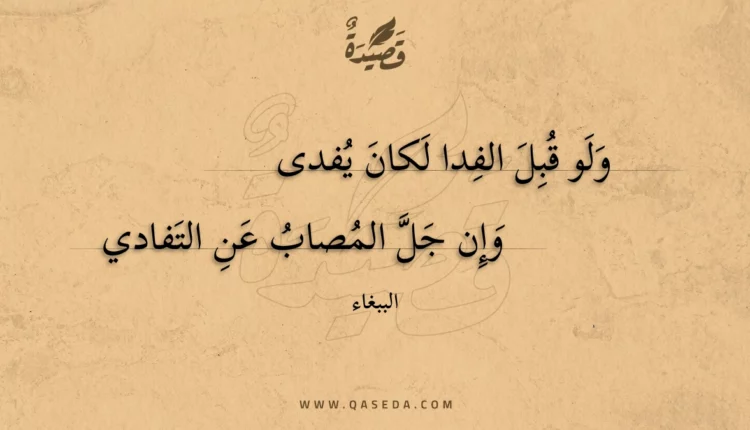 قَصِيْدَةٌ
وَلَو قُبِلَ الفِدا لَكانَ يُفدى
وَإِن جَلَّ المُصابُ عَنِ التَفادي
الببغاء
WWW.QASEDA.COM